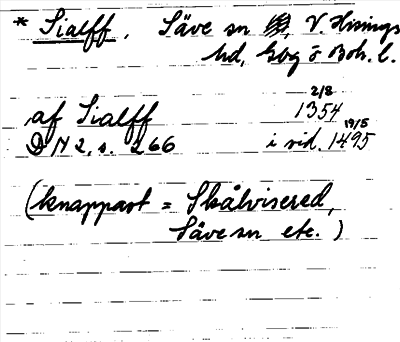 * Sialff, Säve sn, V. Hisings
hd, Gbg o Boh. l.
af Sialff 2/8 1354
DN 2, s. 266 i vid. 19/5 1495
(knappast = Skålvisered,
Säve sn etc.)